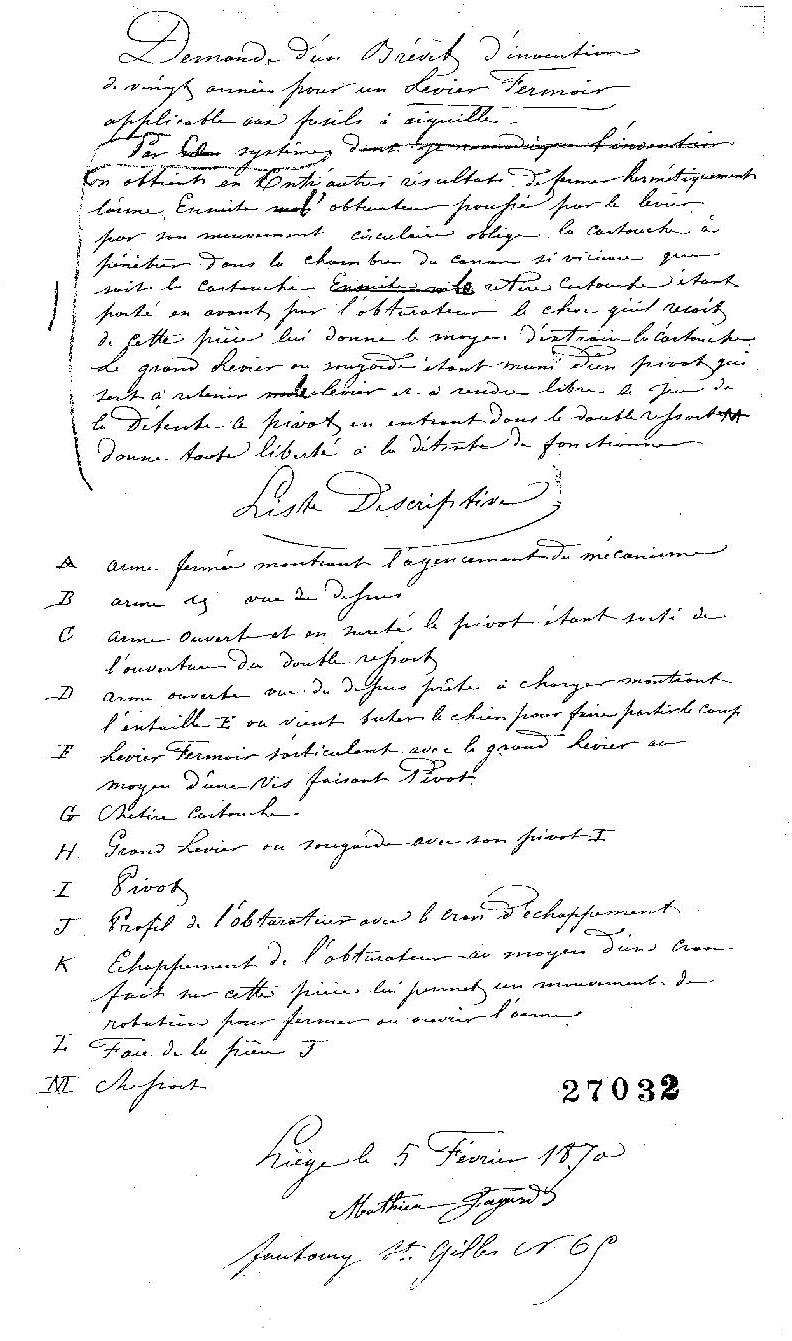 Demande d'un Brévet d'invention
de vingt années pour un Levier Fermoir
applicable aux fusils à aiguilles.
Par système, dont je revendique l'invention
on obtient en Entr'autres résultats de fermer hermétiquement
l'arme. Ensuite l'obturateur poussée par le levier
par son mouvement circulaire oblige la cartouche à
pénétrer dans la chambre du canon si vicieuse que
soit la cartouche. Ensuite le retire cartouche étant
porté en avant par l'obturateur le choc qu'il reçoit
de cette pièce lui donne le moyen d'extraire la cartouche
Le grand Levier ou sougarde étant muni d'un pivot qui
sert à retenir le levier et à rendre libre le jeu de
la Détente ce pivot en entrant dans le double ressort M
donne toute liberté à la détente de fonctionner
Liste Descriptive
A arme fermée montrant l'agencement du mécanisme
B arme vue de dessus
C arme ouverte et en sureté le pivot étant sorti de
l'ouverture du double ressort
D arme ouverte vue du dessus prête à charger montrant
l'entaille E ou vient buter le chien pour faire partir le coup
F Levier Fermoir s'articulant avec le grand Levier au
moyen d'une vis faisant Pivot.
G Retire cartouche.
H Grand Levier ou sougarde avec son pivot I
I Pivot
J Profil de l'obturateur avec le cran d'echappement
K Echappement de l'obturateur au moyen d'un cran
fait sur cette pièce lui permet un mouvement de
rotation pour fermer ou ouvrir l'arme.
L Face de la pièce J
M Ressort
27032
Liège le 5 Février 1870
Mathieu
faubourg St. Gilles N 69